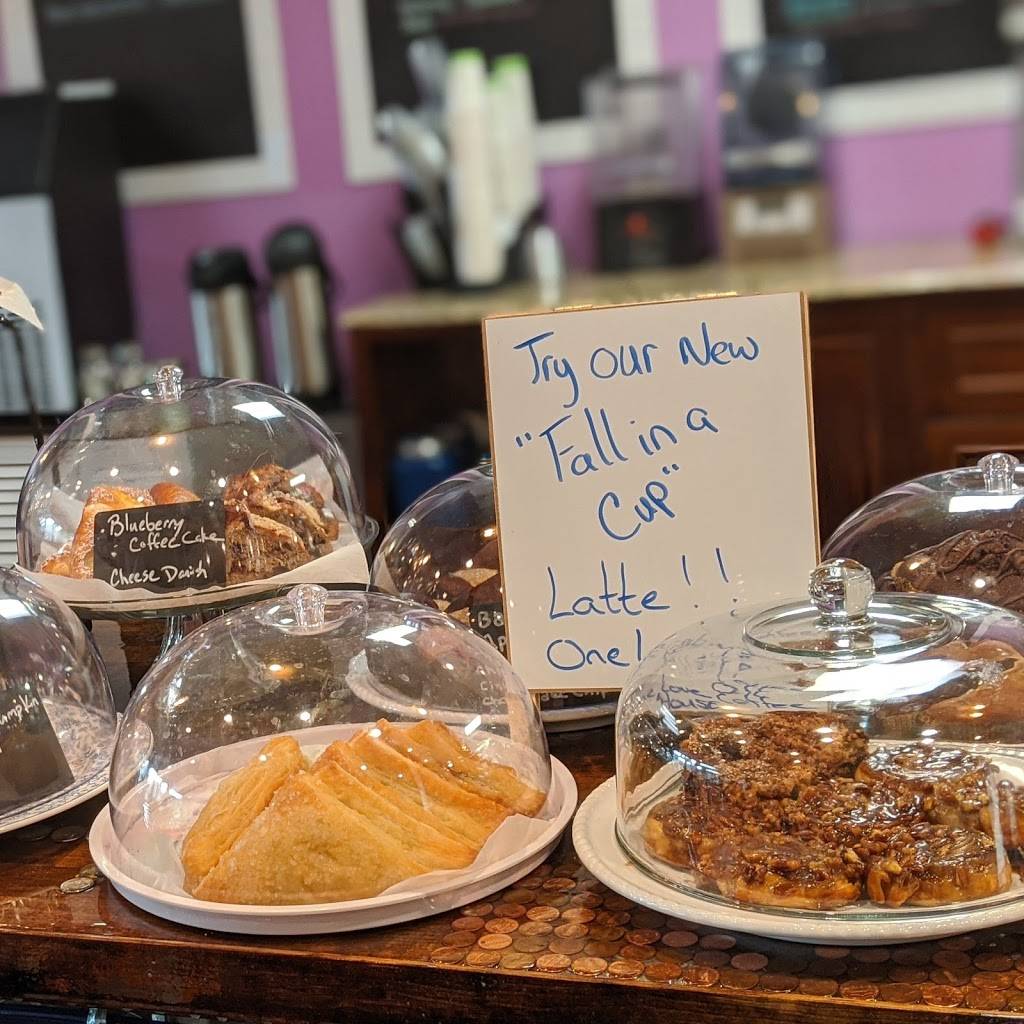 Try our New
"Fall in a
Cup"
Latte!!
One!
Blueberry
Coffee Cake
Cheese Danish